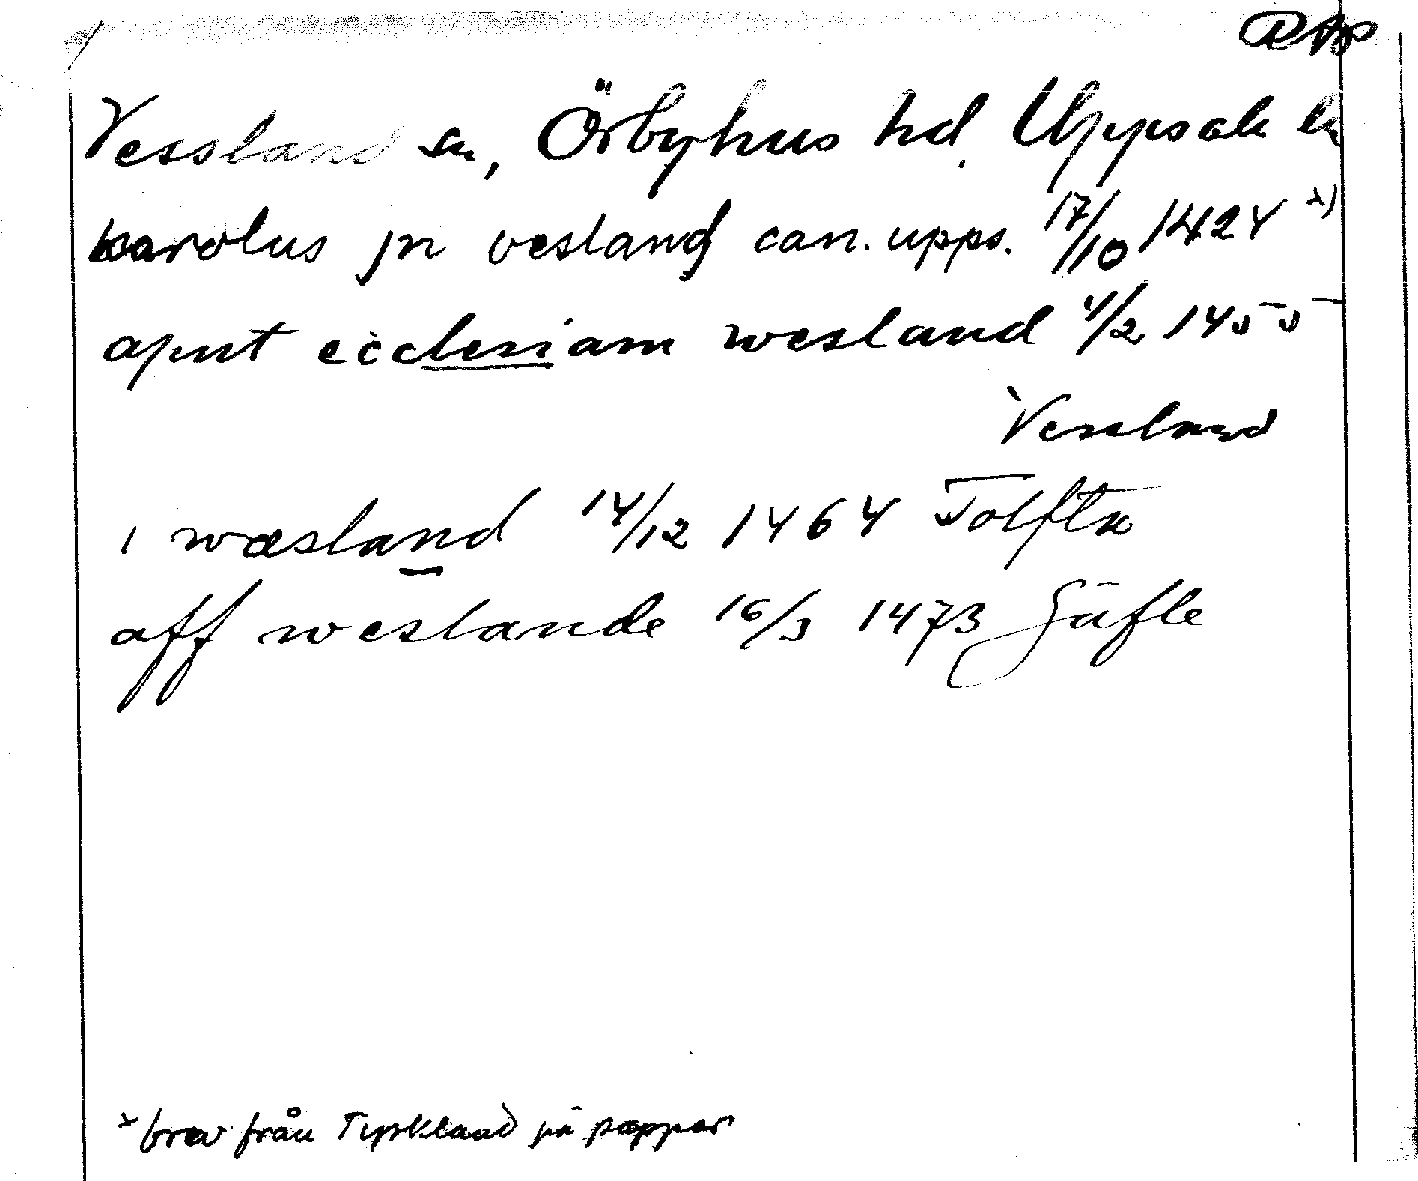 RAp
Vessland sn, Örbyhus hd. Uppsala ln
karolus jn vesland can. upps. 17/10 1424 x)
aput ecclesiam wesland 4/2 1455
Vessland
i wæsland 14/12 1464 Tolfta
aff weslande 16/3 1473 Gäfle
x brev från Tyskland på papper